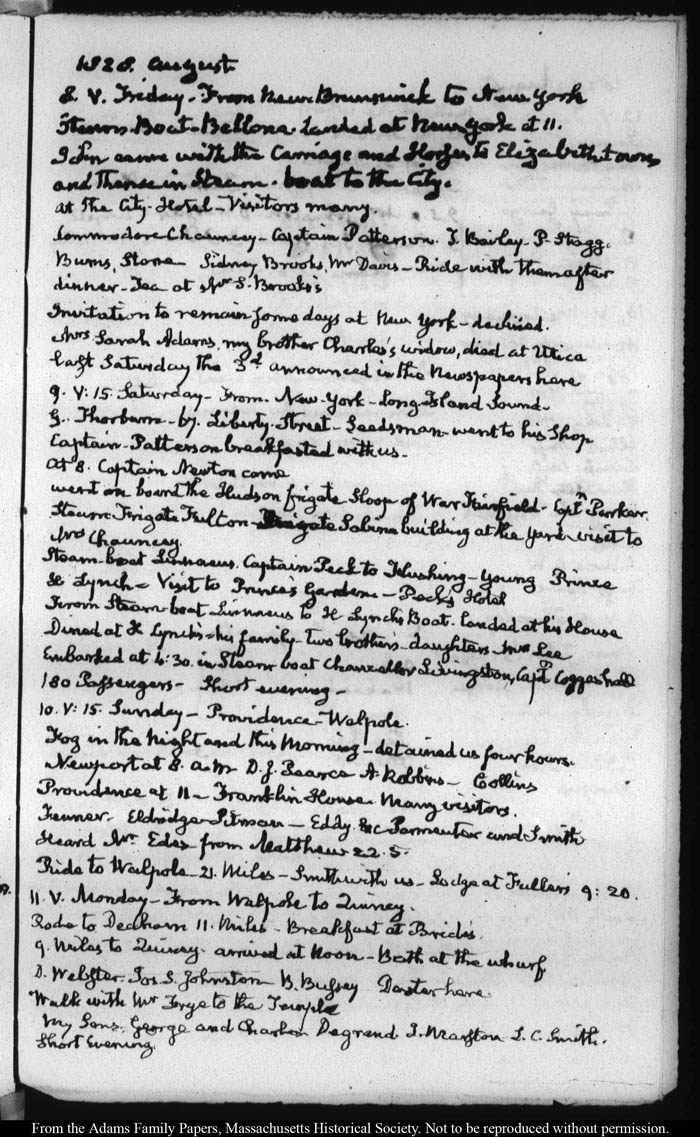 1828. August.
8. V. Friday. From New Brunswick to New York
Steam-Boat-Bellona. Landed at New York at 11.
John came with the Carriage and Horses to Elizabethtown,
and thence in Steam-boat to the City.
at the City-Hotel - Visitors many.
Commodore Chauncey - Captain Patterson. T. Bailey - P. Stagg.
Burns, Stone Sidney Brooks, Mr Davis - Ride with them after
dinner - Tea at Mr S. Brooks's
Invitation to remain some days at New York - declined.
Mrs Sarah Adams, my brother Charles's widow, died at Utica
last Saturday the 3d announced in the Newspapers here
9. V:15. Saturday - From New-York - Long-Island Sound -
G. Thorburn - by Liberty-Street - Seedsman - went to his Shop
Captain Patterson breakfasted with us -
At 8. Captain Newton came
went on board the Hudson frigate Sloop of War Fairfield - Captn Parker
Steam Frigate Fulton - Frigate Sabine building at the yard - visit to
Mrs Chauncey.
Steam-boat Linnaeus. Captain Peck to Flushing - Young Prince
& Lynch - Visit to Prince's Gardens - Peck's Hotel
From Steam-boat Linnaeus to H Lynch's Boat. Landed at his House
Dined at H Lynch's - his family - two brothers - daughters - Mrs Lee
Embarked at 4:30. in Steam boat Chancellor Livingston, Captn Coggeshall
180 Passengers - Short evening -
10. V:15. Sunday - Providence - Walpole.
Fog in the Night and this Morning - detained us four hours.
Newport at 8. a.m D. J. Pearce A. Robbins - Collins
Providence at 11 - Franklin House. Many visitors.
Fenner. Eldridge - Pitman - Eddy &c - Parmenter and Smith
Heard Mr. Edes from Matthew 22. 5.
Ride to Walpole - 21. Miles - Smith with us - Lodge at Fuller's 9:20.
11. V. Monday - From Walpole to Quincy.
Rode to Dedham 11. Miles - Breakfast at Bride's.
9. Miles to Quincy. arrived at Noon - Bath at the wharf
D. Webster. Jos. S. Johnston B. Bussey Dexter here
Walk with Mr Frye to the Temple
My Sons, George and Charles Degrand J. Marston T. C. Smith.
Short Evening.
From the Adams Family Papers, Massachusetts Historical Society. Not to be reproduced without permission.